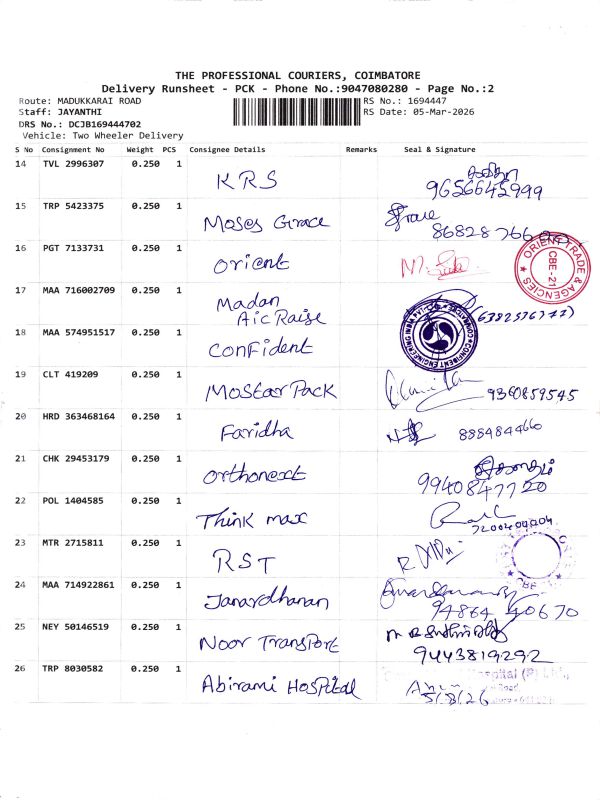 THE PROFESSIONAL COURIERS, COIMBATORE
Delivery Runsheet - PCK - Phone No.:9047080280 - Page No.:2
Route: MADUKKARAI ROAD RS No.: 1694447
Staff: JAYANTHI RS Date: 05-Mar-2026
DRS No.: DCJB169444702
Vehicle: Two Wheeler Delivery
S No Consignment No Weight PCS Consignee Details Remarks Seal & Signature
14 TVL 2996307 0.250 1 KRS
9656645999
15 TRP 5423375 0.250 1 Moses Grace
16 PGT 7133731 0.250 1 Orient
ORIENT TRADE & AGENCIES CBE-21
17 MAA 716002709 0.250 1 Madan
18 MAA 574951517 0.250 1 Confident
CONFIDENT ENGINEERING INDIA PVT
19 CLT 419209 0.250 1 Mostar Pack 9360859545
20 HRD 363468164 0.250 1 Faridha 888484466
21 CHK 29453179 0.250 1 Orthonext
9940847720
22 POL 1404585 0.250 1 Think max
7200409204
23 MTR 2715811 0.250 1 RST
CBE
24 MAA 714922861 0.250 1 Janardhanan
94864 40670
25 NEY 50146519 0.250 1 Noor Transport
9443819292
26 TRP 8030582 0.250 1 Abirami Hospital
Hospital (P) Ltd.,
Road